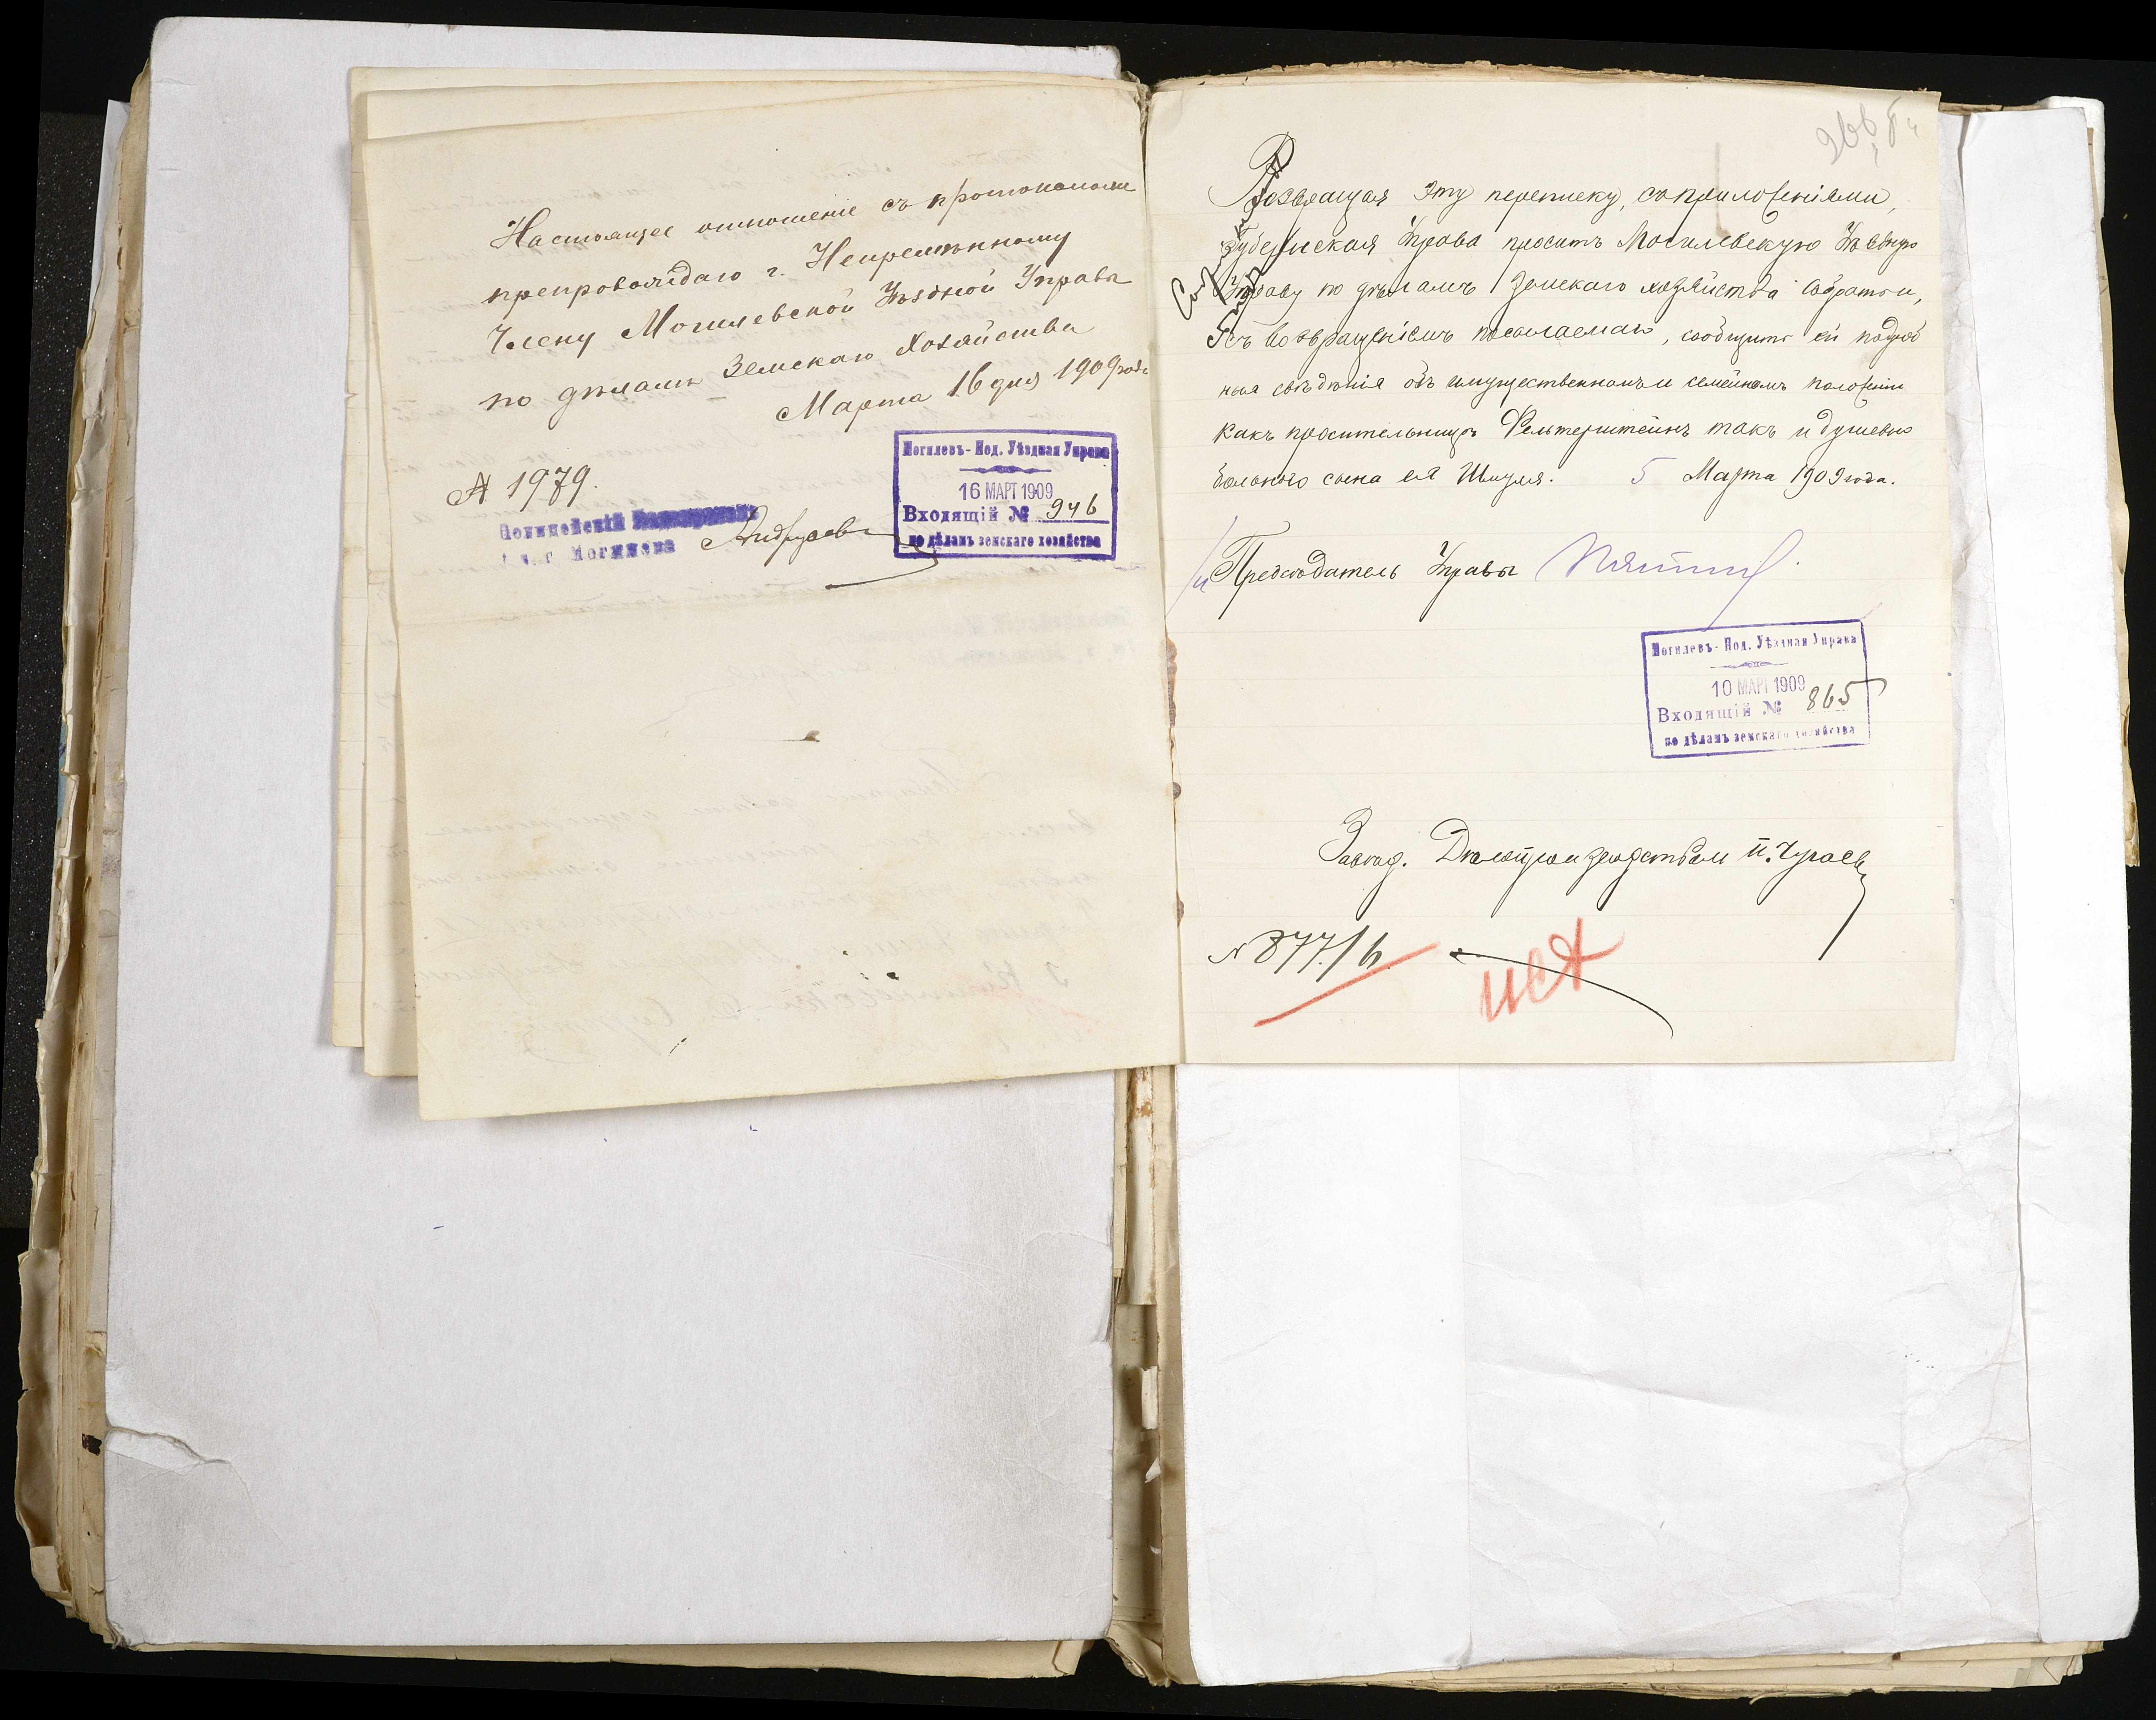 Настоящее отношеніе съ протоколомъ
препровождаю г. Непремѣнному
Члену Могилевской Уѣздной Управы
по дѣламъ Земскаго Хозяйства
Марта 16 дня 1909 года
№ 1979.
Полицейскій
г. Могилева
Могилевъ-Под. Уѣздная Управа
16 МАРТ 1909
Входящій № 946
по дѣламъ земскаго хозяйства
Возвращая эту переписку, съ приложеніями,
Губернская Управа проситъ Могилевскую Уѣздную
Управу по дѣламъ Земскаго хозяйства собрать и,
съ возвращеніемъ посылаемаго, сообщить ей подроб
ныя свѣдѣнія объ имущественномъ и семейномъ положеніи
какъ просительницы Фельтерштейнъ такъ и душевно
больного сына ея Шмуля. 5 Марта 1909 года.
Предсѣдатель Управы
Могилевъ-Под. Уѣздная Управа
10 МАРТ 1909
Входящій № 865
по дѣламъ земскаго хозяйства
Завѣд. Дѣлопроизводствомъ
№ 877/6
исх